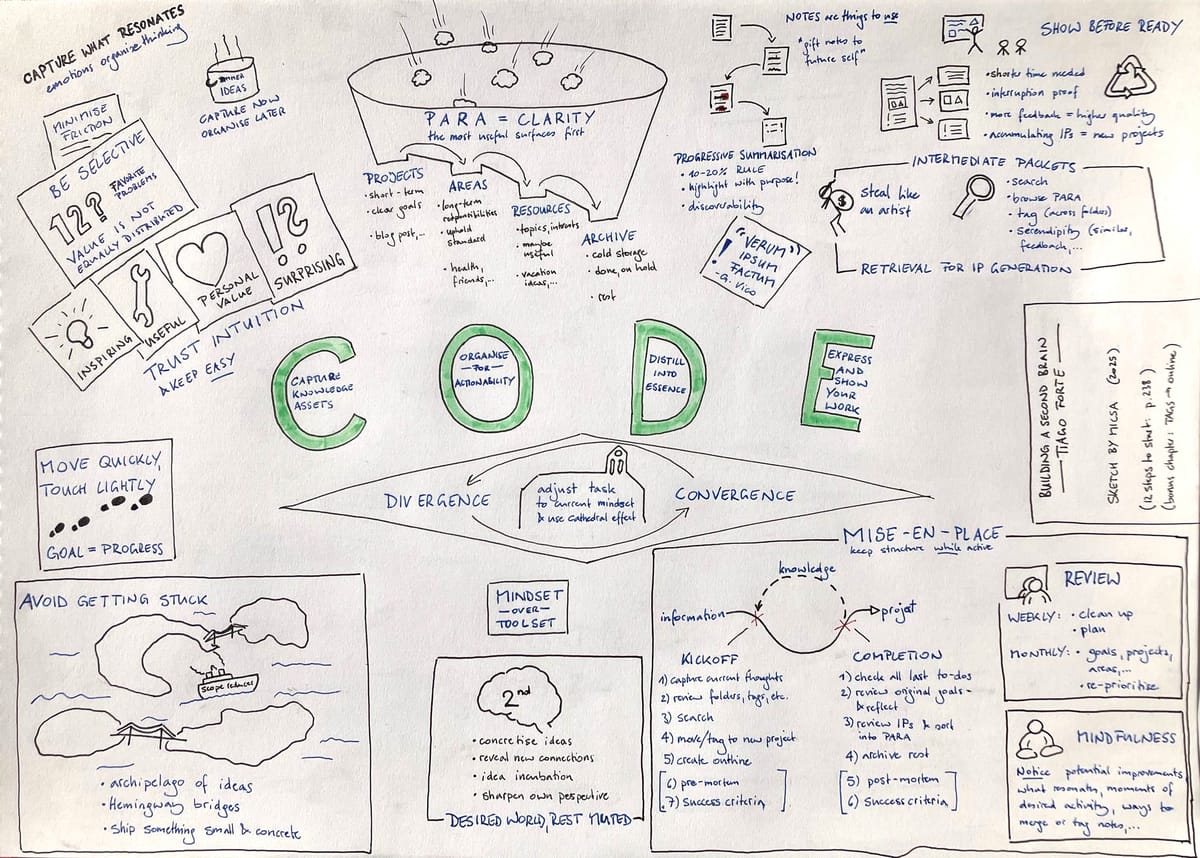 CAPTURE WHAT RESONATES
emotions organise thinking
MINIMISE
FRICTION
IDEAS
CAPTURE NOW
ORGANISE LATER
BE SELECTIVE
12?
FAVORITE
PROBLEMS
VALUE IS NOT
EQUALLY DISTRIBUTED
INSPIRING
USEFUL
PERSONAL
VALUE
!?
SURPRISING
TRUST INTUITION
& KEEP EASY
PARA = CLARITY
the most useful surfaces first
PROJECTS
• short-term
• clear goals
• blog post,...
AREAS
• long-term
responsibilities
• uphold
standard
• health,
friends,...
RESOURCES
• topics, interests
• maybe
useful
• vacation
ideas,...
ARCHIVE
• cold storage
• done, on hold
• rest
NOTES are things to use
"gift notes to
future self"
PROGRESSIVE SUMMARISATION
• 10-20% RULE
• highlight with purpose!
• discoverability
!
"VERUM
IPSUM
FACTUM"
- G. Vico
SHOW BEFORE READY
• shorter time needed
• interruption proof
• more feedback = higher quality
• accumulating IPs = new projects
INTERMEDIATE PACKETS
$
steal like
an artist
• search
• browse PARA
• tag (across folders)
• serendipity (similar,
feedback,...
RETRIEVAL FOR IP GENERATION
C O D E
CAPTURE
KNOWLEDGE
ASSETS
ORGANISE
—FOR—
ACTIONABILITY
DISTILL
INTO
ESSENCE
EXPRESS
AND
SHOW
YOUR
WORK
BUILDING A SECOND BRAIN
— TIAGO FORTE —
SKETCH BY MICSA (2025)
(12 steps to start: p.238)
(bonus chapter: TAGS → online)
MOVE QUICKLY,
TOUCH LIGHTLY
GOAL = PROGRESS
DIVERGENCE
adjust task
to current mindset
& use cathedral effect
CONVERGENCE
AVOID GETTING STUCK
scope reducer
• archipelago of ideas
• Hemingway bridges
• ship something small & concrete
MINDSET
—OVER—
TOOLSET
2nd
• concretise ideas
• reveal new connections
• idea incubation
• sharpen own perspective
DESIRED WORLD, REST MUTED
MISE-EN-PLACE
keep structure while active
knowledge
information
project
KICKOFF
1) capture current thoughts
2) review folders, tags, etc.
3) search
4) move/tag to new project
5) create outline
[6) pre-mortem
7) success criteria]
COMPLETION
1) check all last to-dos
2) review original goals -
& reflect
3) review IPs & sort
into PARA
4) archive rest
[5) post-mortem
6) success criteria]
REVIEW
WEEKLY: • clean up
• plan
MONTHLY: • goals, projects,
areas,...
• re-prioritise
MINDFULNESS
Notice potential improvements
what resonates, moments of
desired activity, ways to
merge or tag notes,...